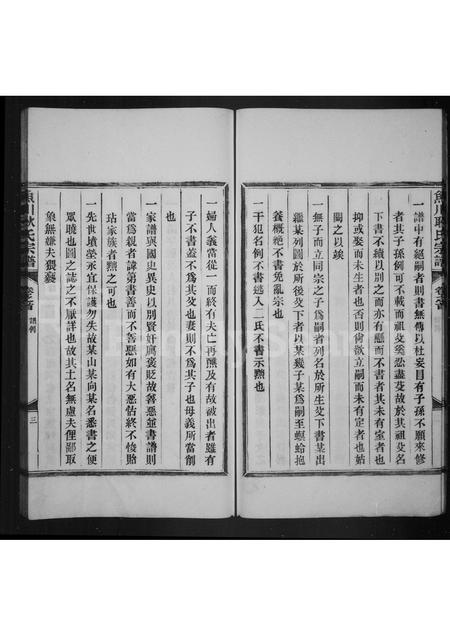 一譜中有絕嗣者則書無傳以杜妄冒有子孫不願來修
者其子孫例可不載而祖父奚忍盡芟故於其祖父名
下書不續以別之而亦有懸而不書者其未有室者也
抑或娶而未生者也否則尚欲立嗣而未有定者也姑
闕之以俟
一無子而立同宗之子爲嗣者列名於所生父下書某出
繼某列圖於所後父下者以某幾子某爲嗣至螟蛉抱
養概絕不書免亂宗也
一干犯名例不書逃入二氏不書示黜也
魚川耿氏宗譜 卷之首
一婦人義當從一而終有夫亡再醮及有故被出者雖有
子不書蓋夫可不爲其父也妻則不爲其子也母義所當削
也
一家譜與國史異史以別賢奸寓褒貶故善惡並書譜則
當爲親者諱弟書善而不善惡如有大惡怙終不悛貽
玷家族者黜之可也
一先世墳塋永宜保護勿失故某山某向某名悉書之便
眾曉也圖之誌之不厭詳也故其土名無慮夫俚鄙取
象無嫌夫猥褻
魚川耿氏宗譜 卷之首 譜例 三